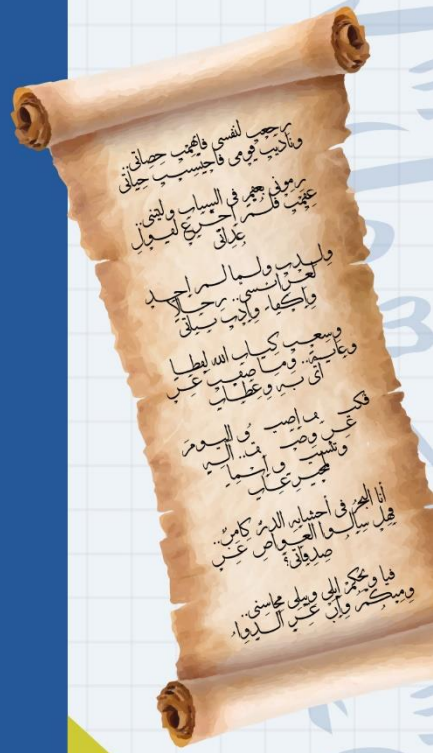 رجعت لنفسي فاتهمت حصاتي..
وناديت قومي فاحتسبت حياتي
رموني بعقم في الشباب وليتني..
عقمت فلم أجزع لقول
عداتي
ولدت ولما لم أجد
لعرائسي.. رجالا
وأكفاء وأدت بناتي
وسعت كتاب الله لفظا
وغاية.. وما ضقت عن
آي به وعظات
اليوم
عن
أنا البحرُ في أحشائه الدرُ كامنٌ..
فهل سألوا الغواص عن
صدفاتي؟
فيا ويحكم أبلى وتبلى محاسني..
ومنكم وإن عز الدواء